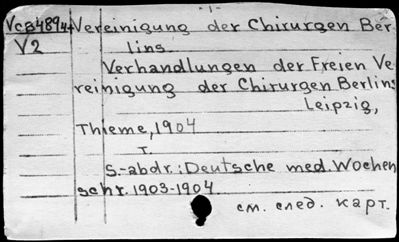 -1-
Vcb4894 Vereinigung der Chirurgen Ber-
V2 lins.
Verhandlungen der Freien Ve
reinigung der Chirurgen Berlins
Leipzig,
Thieme, 1904
T.
S.-abdr.: Deutsche med. Wochen
schr. 1903-1904
см. след. карт.